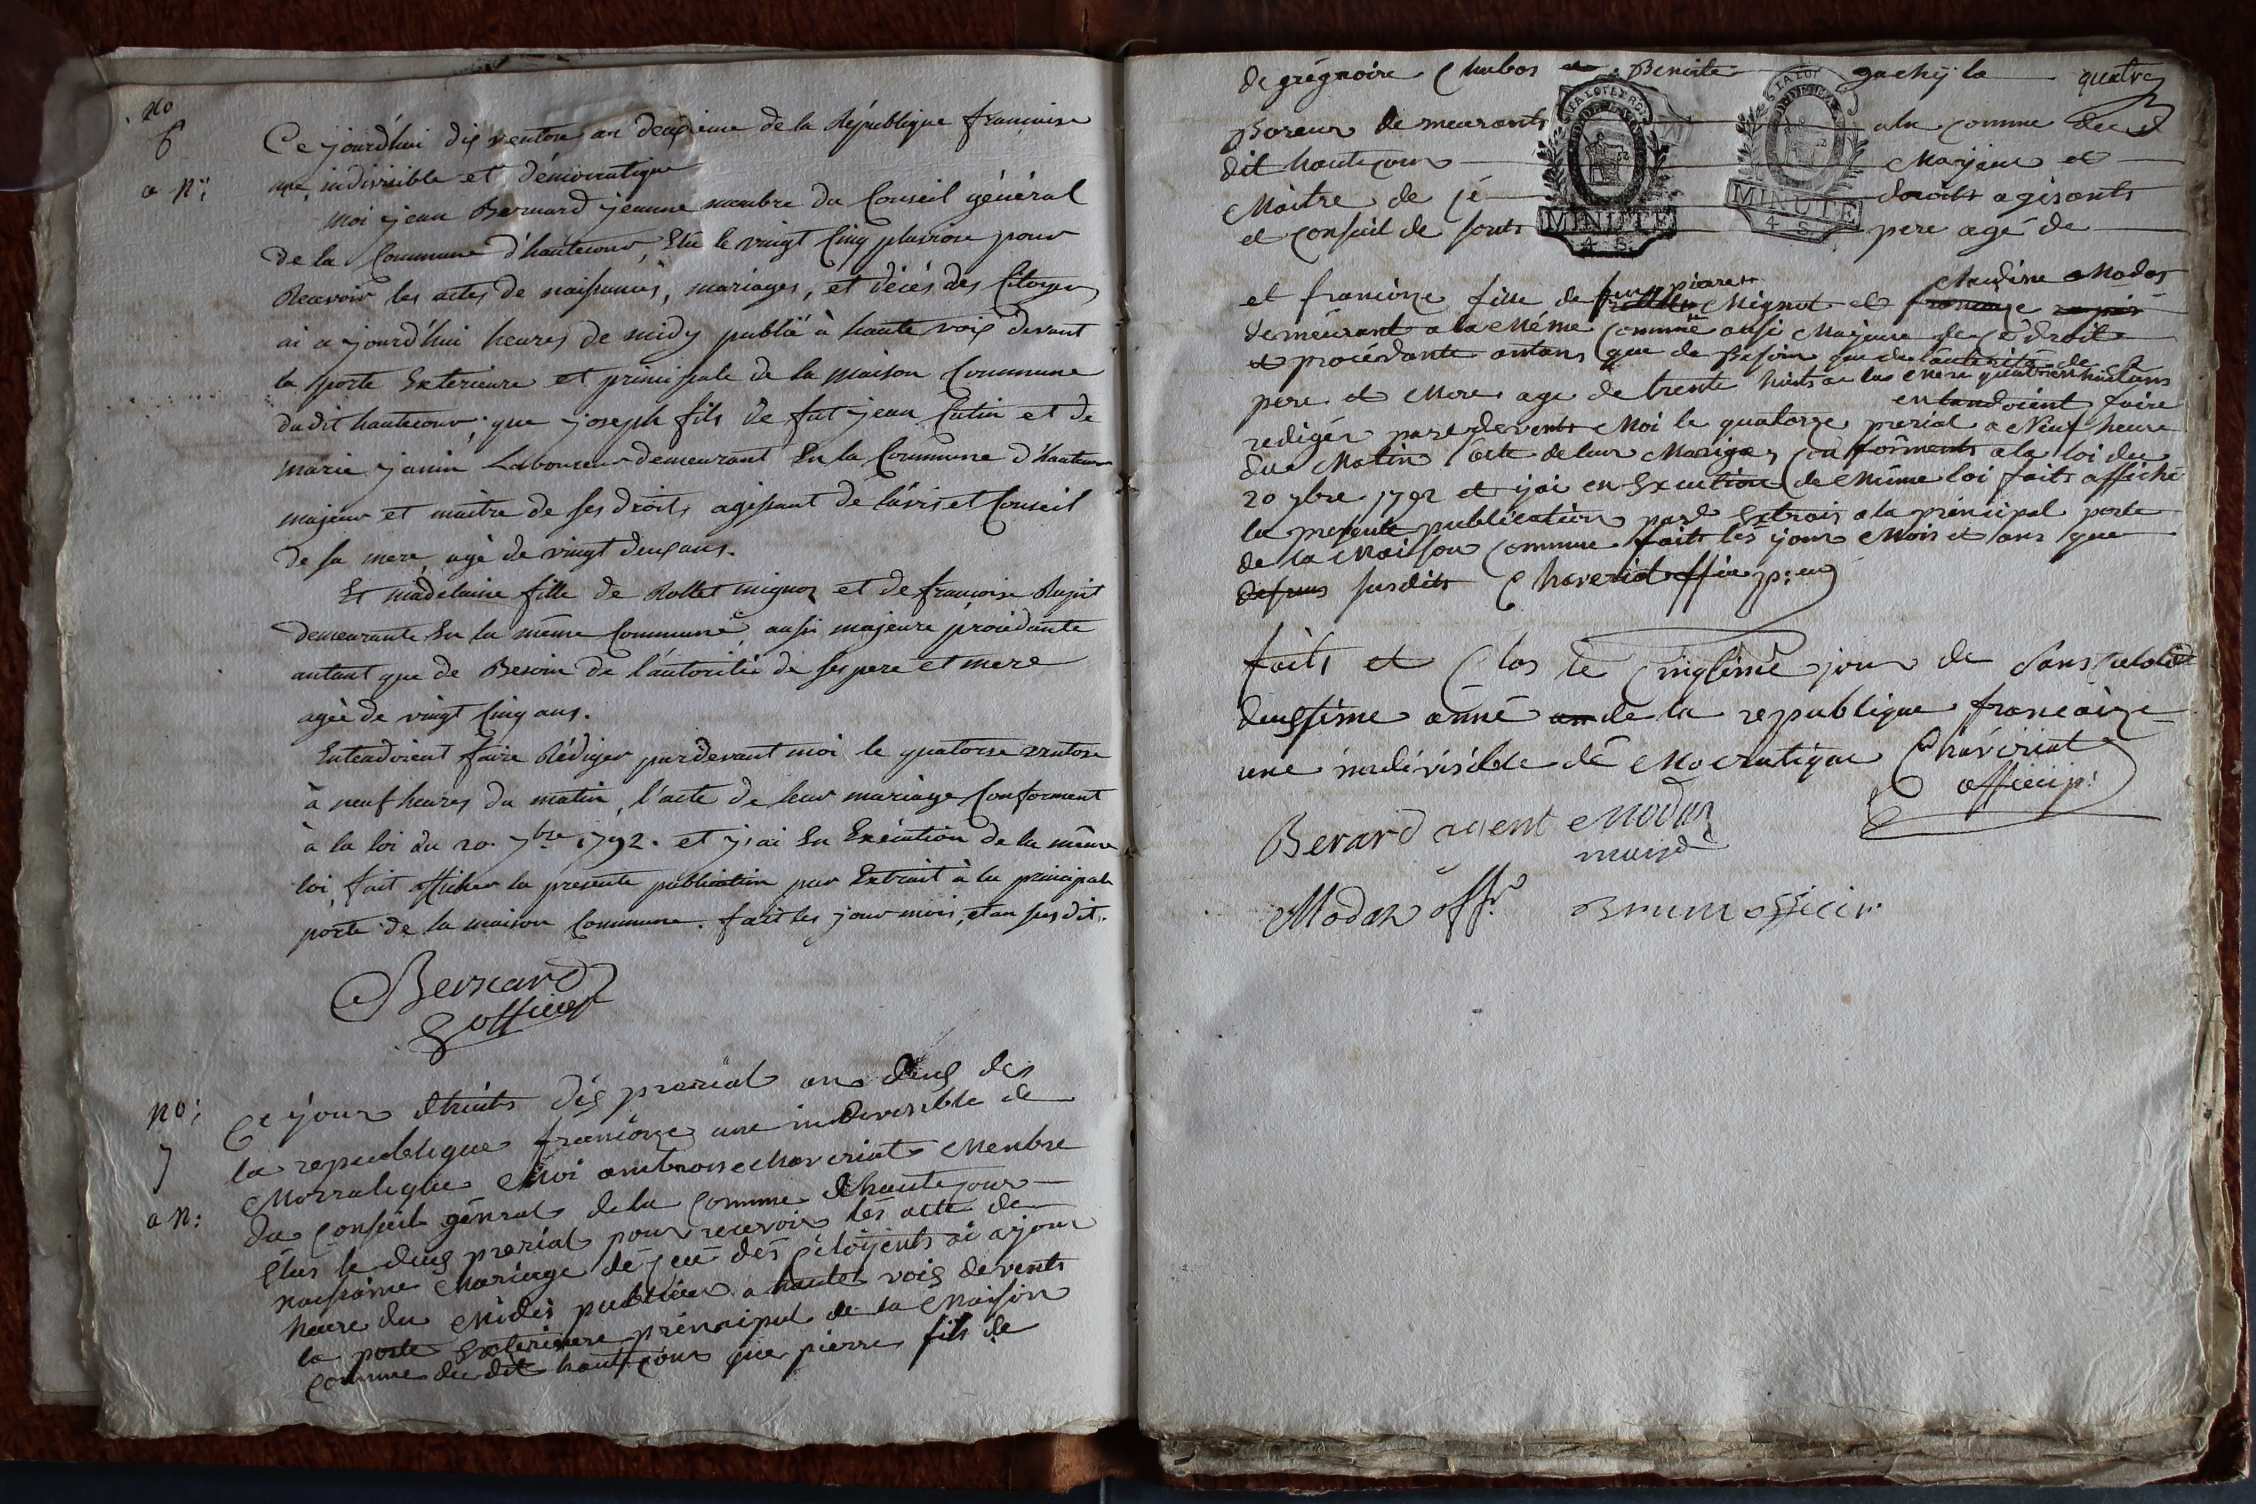 no
6
a n:
Ce jourd'hui dix ventose an deuxieme de la République francaise
une, indivisible et démocratique
Moi jean Bernard jeunne membre du Conseil général
de la Commune d'hautecour, Elû le vingt Cinq pluviose pour
Recevoir les actes de naissances, mariages, et décés des Citoyens
ai a jourd'hui heures de midy publié à haute voix devant
la porte Exterieure et principale de la maison Commune
dudit hautecour, que joseph fils de fut jean Cutin et de
marie janin Laboureur demeurant En la Commune d'hautecour
majeur et maitre de ses droits agissant de l'avis et Conseil
de sa mere, agé de vingt deux ans.
Et madelaine fille de Rollet mignot et de francoise
demeurante En la même Commune, aussi majeure procédante
autant que de Besoin de l'autorité de ses pere et mere
agée de vingt Cinq ans.
Entendoient faire Rédiger pardevant moi le quatorze ventose
à neuf heures du matin, l'acte de leur mariage Conforment
à la loi du 20. 7bre 1792. et j'ai En Exécution de la même
loi, fait afficher la presente publication par Extrait à la principale
porte de la maison Commune. fait les jour mois, et an susdit.
Bernard
officier
no:
7
a n:
Ce jour dhuits dix prerial an deux de
la republique francoize une indivesible de
Mocratique Moi ambroise chaveriat Menbre
du Conseil génral de la Comme dhautecour
Elus le deux prerial pour recevoir les acte de
naissance Mariage dé cé des citoijents ai ajour
heure du Midis publier a haute voix devents
la porte Exterieure prencipal de la Maison
Comme du dit hautecour que pierre fils de
de grégnoire Chubos Benoite quatre
demeurants a la Comme du
dit hautecour Majeur et
Maitre de sé droits agisants
et Conseil de sonts pere agé de
MINUTE
4 S.
MINUTE
4 S.
et francoize fille de pierre Mignot et Claudine Modas
demeurant a la Méme Commune ausi Majeure de ce droit
et procédante autans que de Besoin que de l'autorité de
pere et Mere age de trente huits
entandoient faire
rediger pardevents Moi le quatorze prerial a Neuf heure
du Matin l'acte de leur Mariage Conforments a la loi du
20 7bre 1792 et j'ai en Execution de Même loi faits affiché
la presente publication pard Extrais a la principal porte
de la Maison Commune faits les jour Mois et ans que
susdits Chaveriat officier
faits et Clos le Cinqieme jour de sans culotid
deuxsieme anné de la republique francaize
une indivisible dé Mocratique Chaveriat
officier p:
Berard agent Modas
maire
Modas offr. Brun officier